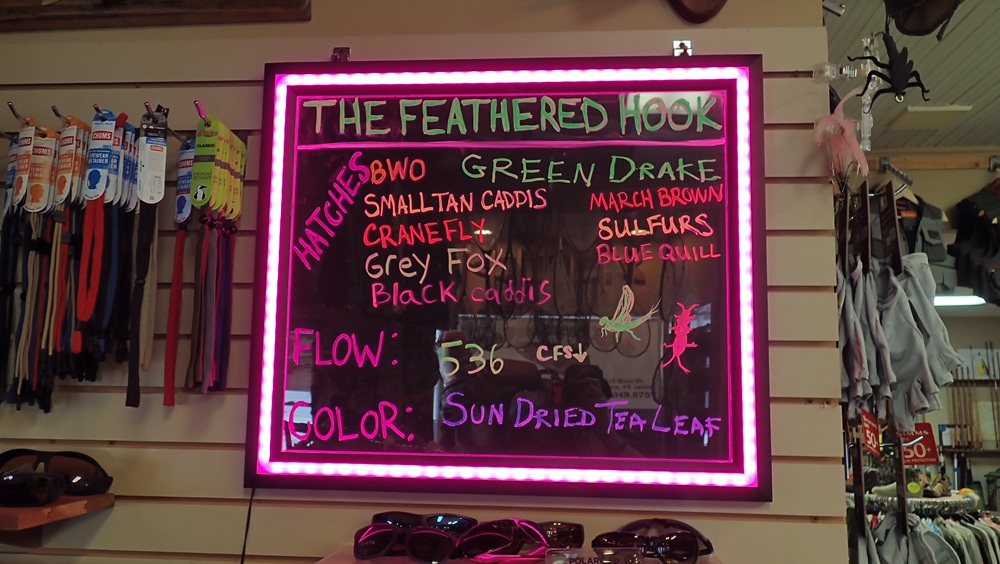 THE FEATHERED HOOK
HATCHES
BWO
SMALL TAN CADDIS
CRANEFLY
Grey Fox
Black caddis
GREEN DRAKE
MARCH BROWN
SULFURS
BLUE QUILL
FLOW: 536 CFS↓
COLOR: SUN DRIED TEA LEAF
CHUMS
CHUMS
CHUMS
50+
50+
POLARI